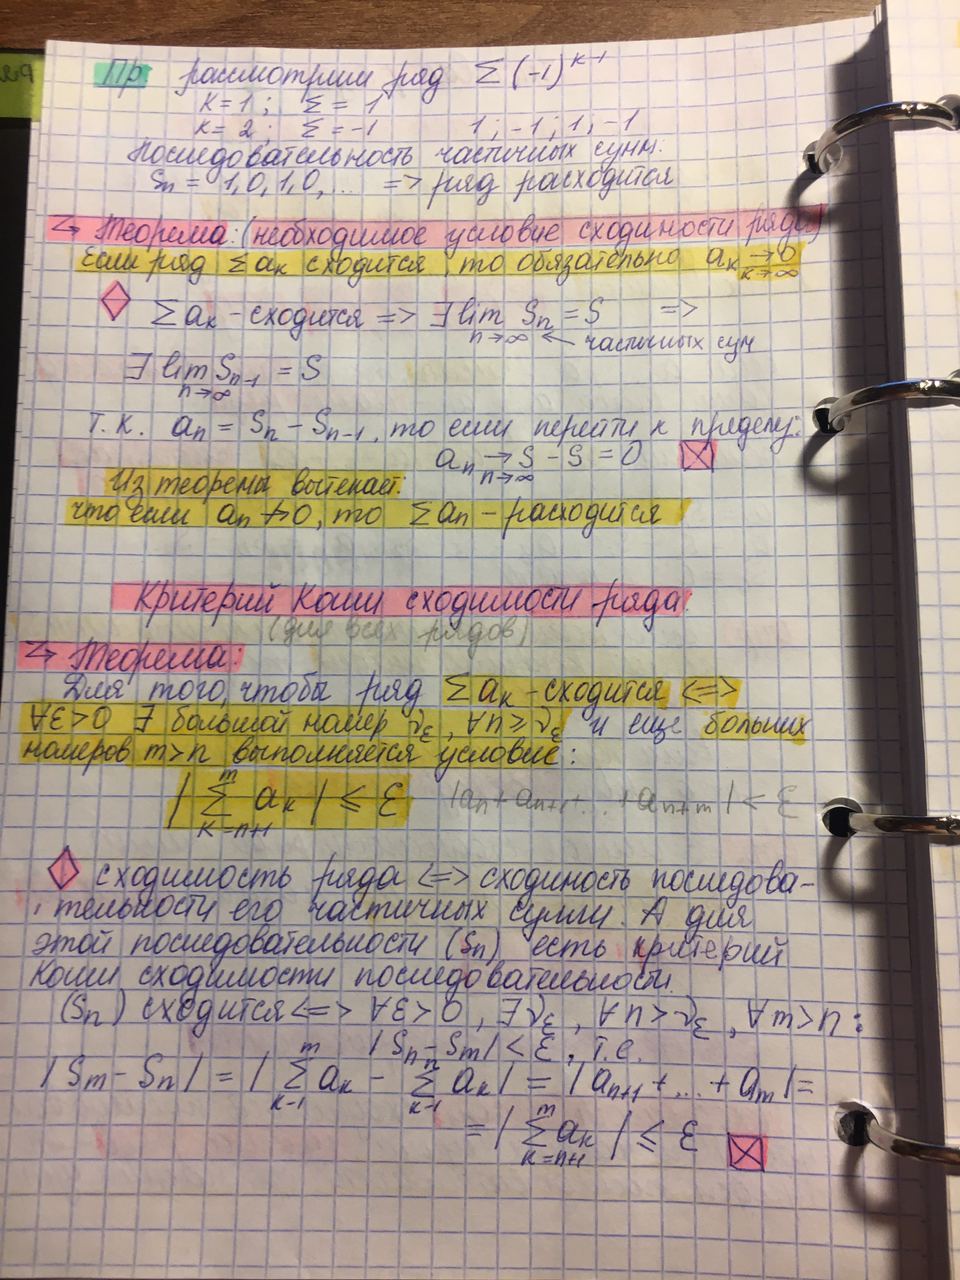 Пр рассмотрим ряд Σ(-1)^{k-1}
k=1; Σ = 1
k=2; Σ = -1 1; -1; 1; -1
Последовательность частичных сумм:
Sn = 1,0,1,0,... => ряд расходится
Теорема: (необходимое условие сходимости ряда)
Если ряд Σak сходится, то обязательно ak → 0 k→∞
Σak - сходится => ∃ lim Sn = S =>
n→∞ ← частичных сум
∃ lim Sn-1 = S
n→∞
т.к. an = Sn - Sn-1, то если перейти к пределу:
an → S - S = 0
n→∞
Из теоремы вытекает:
что если an ↛ 0, то Σan - расходится
Критерий Коши сходимости ряда:
(для всех рядов)
Теорема:
Для того, чтобы ряд Σak - сходится <=>
∀ε>0 ∃ большой номер νε, ∀n>νε и еще больших
номеров m>n выполняется условие:
| Σ_{k=n+1}^{m} ak | ⩽ ε |an + an+1 + ... + an+m| < ε
сходимость ряда <=> сходимость последова-
тельности его частичных сумм. А для
этой последовательности (Sn) есть критерий
Коши сходимости последовательности.
(Sn) сходится <=> ∀ε>0, ∃νε, ∀n>νε, ∀m>n:
|Sn - Sm| < ε, т.е.
|Sm - Sn| = | Σ_{k-1}^{m} ak - Σ_{k-1}^{n} ak | = | an+1 + ... + am | =
= | Σ_{k=n+1}^{m} ak | ⩽ ε